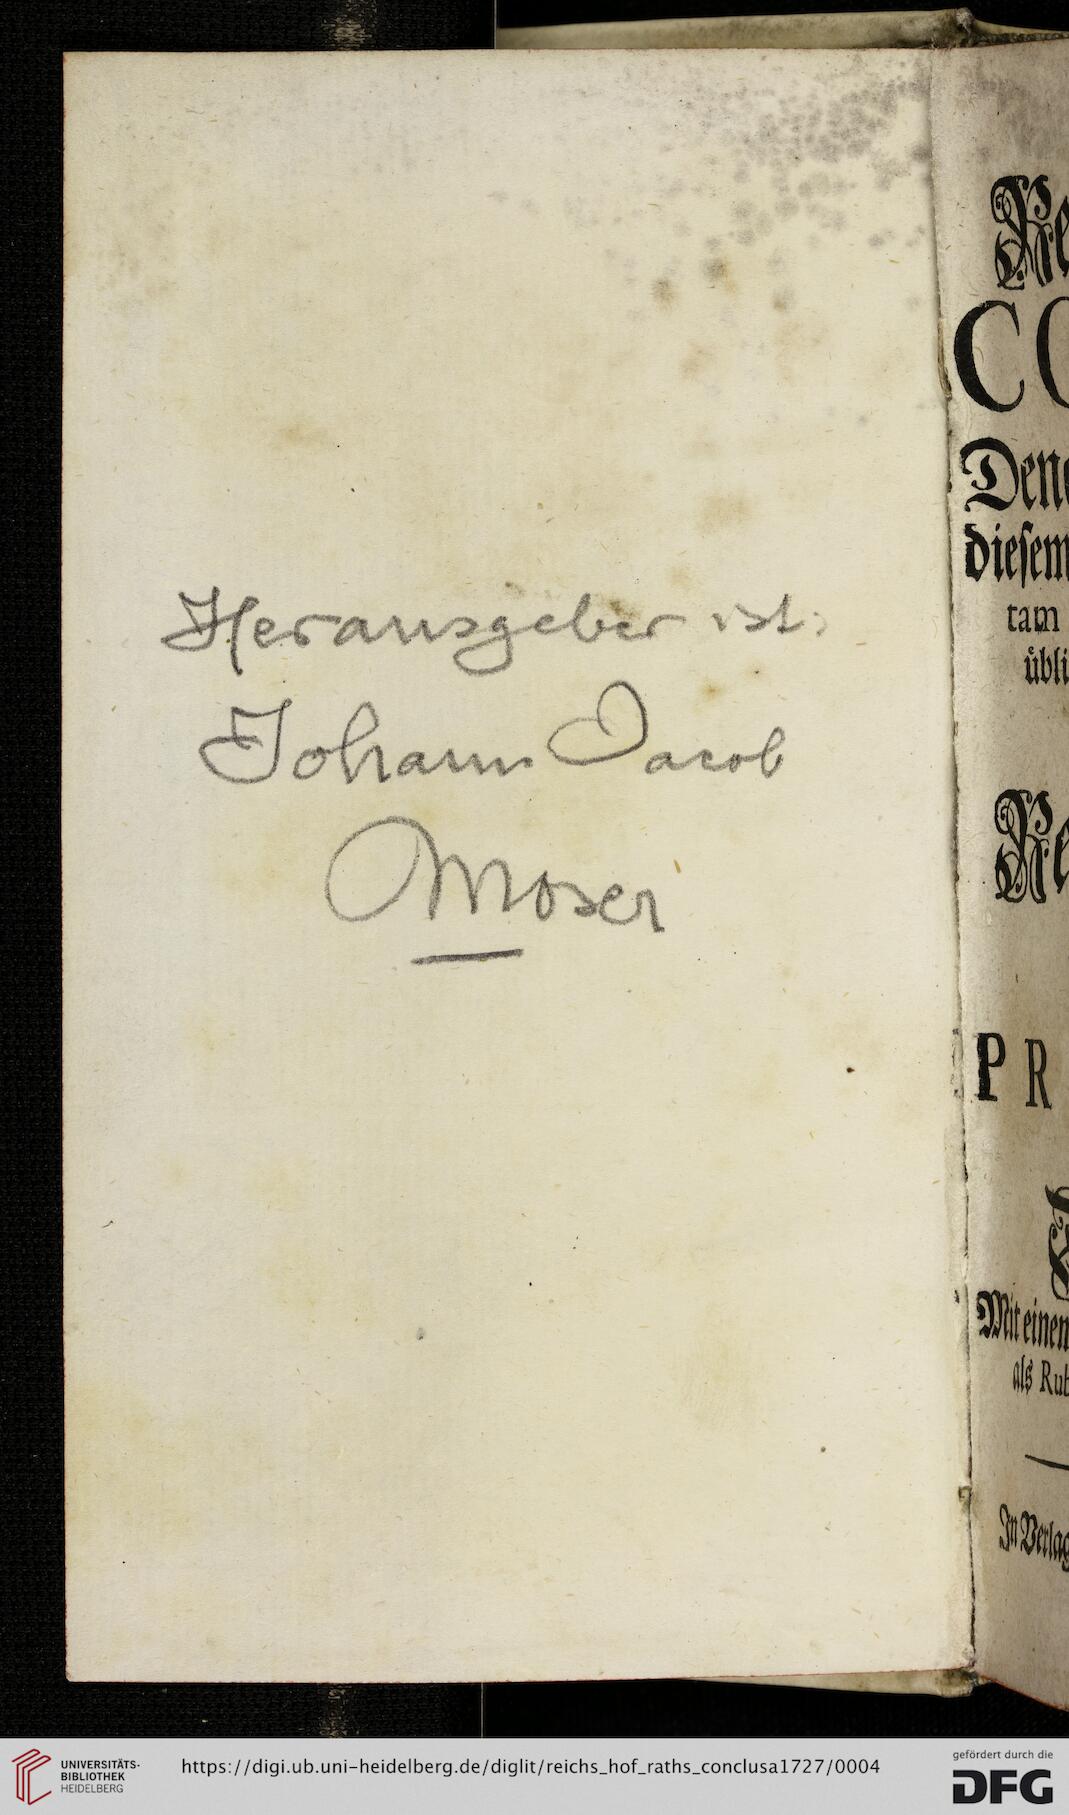 Herausgeber ist:
Johann Jacob
Moser
Re
CO
Dene
diesem
tam
übli
Re
PR
Mit einem
als Rub
In Verlag
UNIVERSITÄTS-
BIBLIOTHEK
HEIDELBERG
https://digi.ub.uni-heidelberg.de/diglit/reichs_hof_raths_conclusa1727/0004
gefördert durch die
DFG